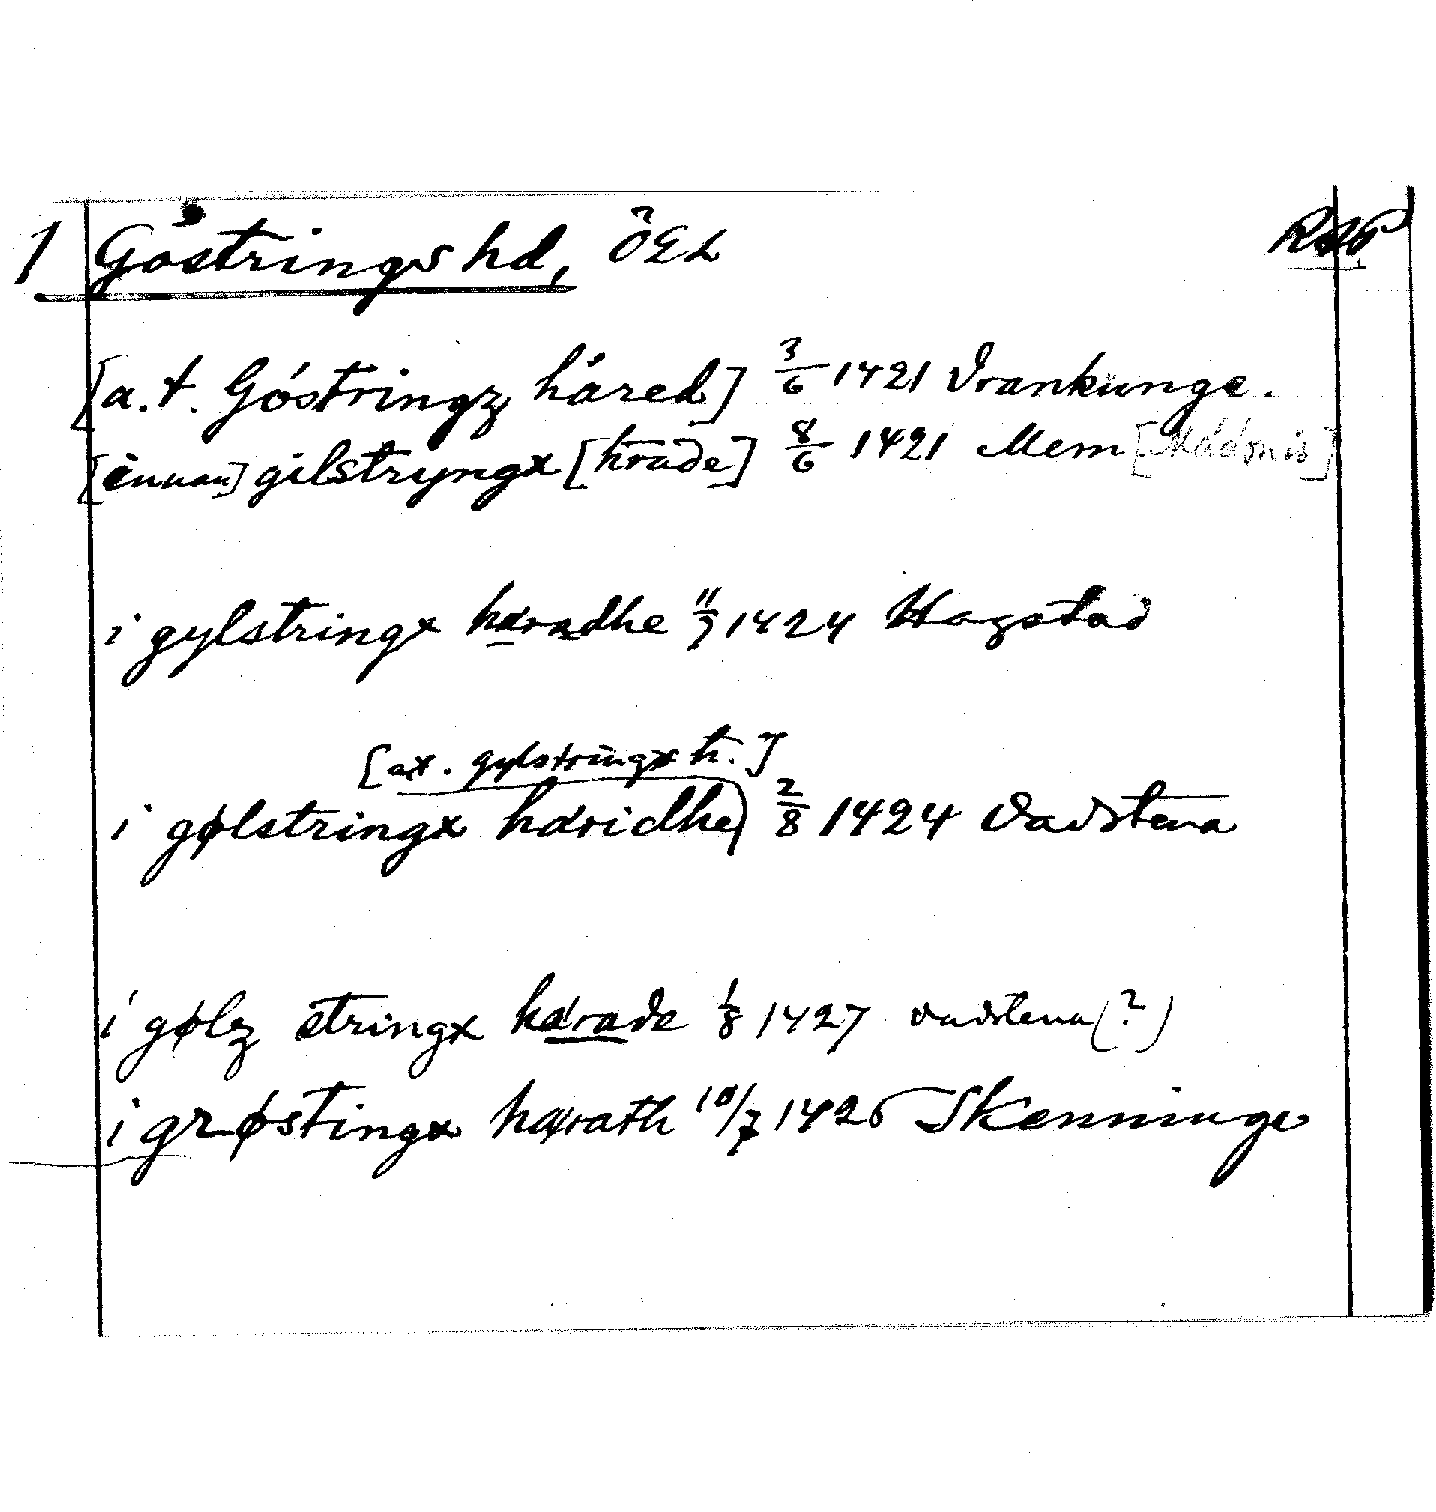 1 Göstrings hd, ÖGL RAP
[a.t. Göstringz häred] 3/6 1421 Vrankunge.
[innan] gilstryngx [hrade] 8/6 1421 Mem
i gylstringx hæradhe 11/7 1424 Hagstad
[at. gylstringx h.]
i gølstringx haridhe) 2/8 1424 Vadstena
i gølz stringx hærade 1/8 1427 vadstena (?)
i grøstingx hærath 10/7 1426 Skenninge